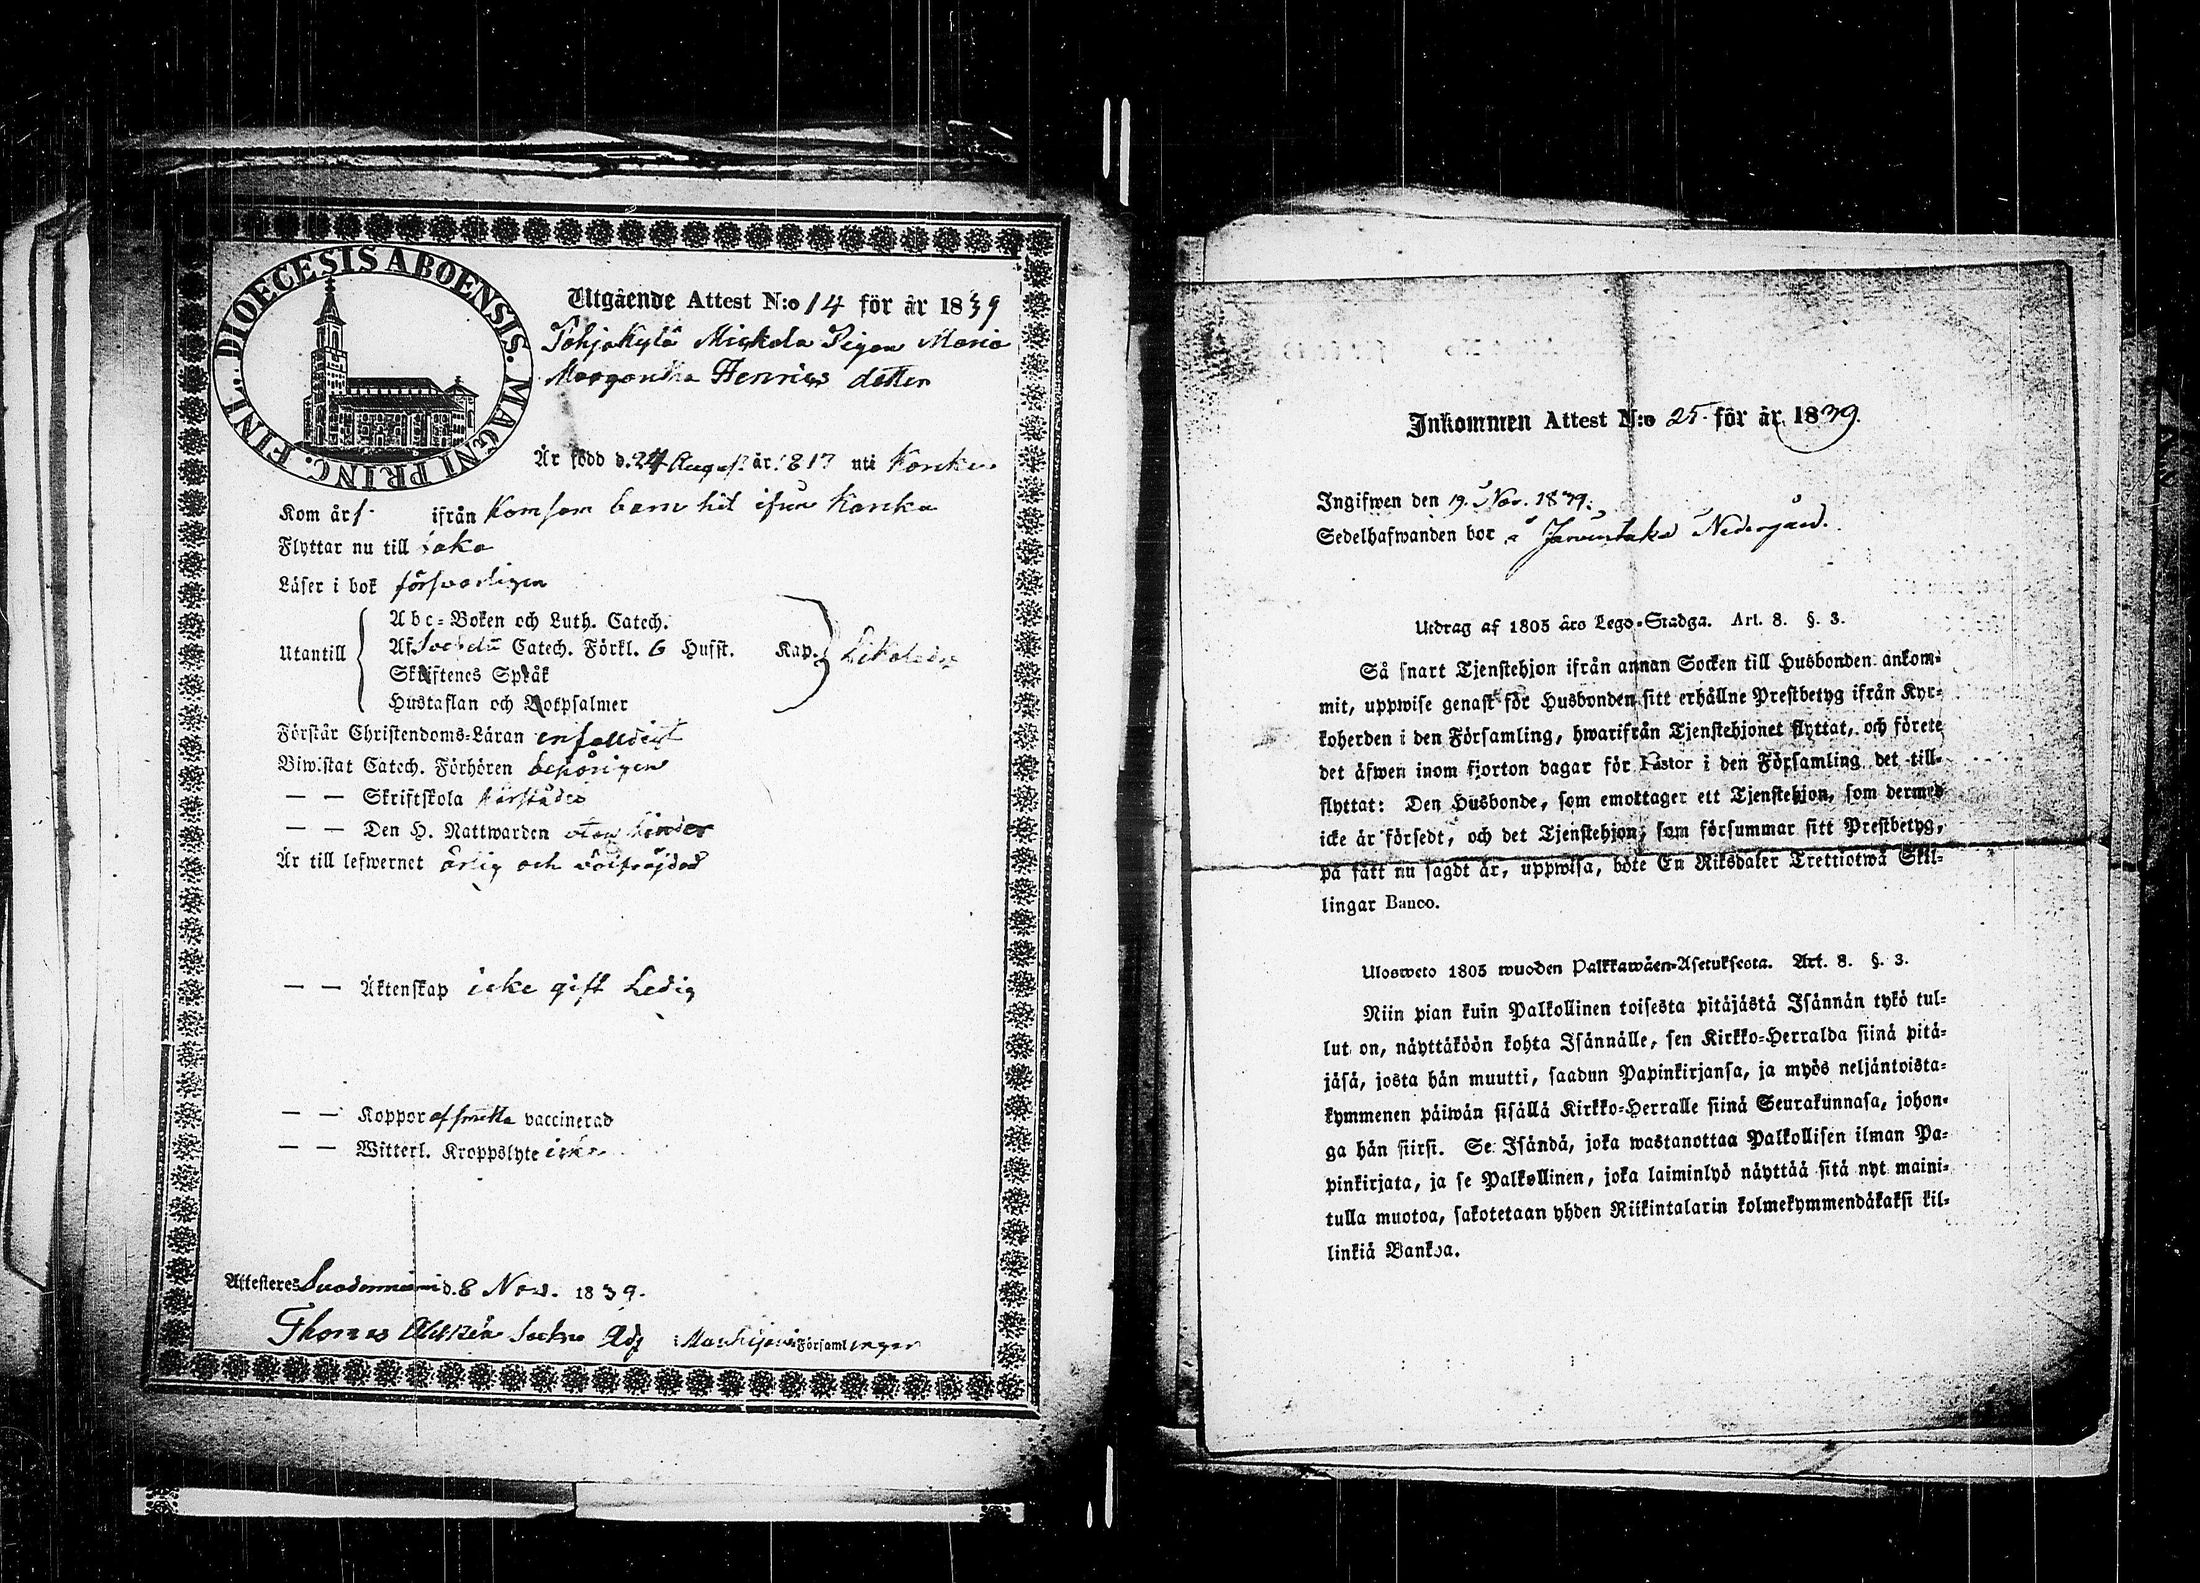 FINL. DIOECESIS ABOENSIS. MAGNI PRINC.
Utgående Attest N:o 14 för år 1839
Pohjakylä Mickola Pigan Maria
Margaretha Henrics dotter
Är född d. 24 August. år 1817 uti Kanka
Kom år ifrån Kom som barn hit ifrån Kanka
Flyttar nu till
Läser i bok försvarligen
Utantill
Abc-Boken och Luth. Catech.
Af Catech. Förkl. 6 Hufst. Kap.
Skriftenes Språk
Hustaflan och Botpsalmer
Förstår Christendoms-Läran enfaldigt
Biwistat Catech. Förhören behörigen
— — Skriftskola
— — Den H. Nattwarden utan hinder
Är till lefwernet ärlig och välfräjdad
— — Äktenskap icke gift Ledig
— — Koppor vaccinerad
— — Witterl. Kroppslyte icke
Attesteres Suodenniemi d. 8 Nov. 1839.
Thomas Adj Församlingar
Inkommen Attest N:o 25 för år 1839.
Ingifwen den 19 Nov. 1839.
Sedelhafwanden bor å Järventaka Nedergård.
Utdrag af 1805 års Lego-Stadga. Art. 8. §. 3.
Så snart Tjenstehjon ifrån annan Socken till Husbonden ankom-
mit, uppwise genast för Husbonden sitt erhållne Prestbetyg ifrån Kyr-
koherden i den Församling, hwarifrån Tjenstehjonet flyttat, och förete
det äfwen inom fjorton dagar för Pastor i den Församling det till-
flyttat: Den Husbonde, som emottager ett Tjenstehjon, som dermed
icke är försedt, och det Tjenstehjon, som försummar sitt Prestbetyg,
på sätt nu sagdt är, uppwisa, böte En Riksdaler Trettiotwå Skil-
lingar Banco.
Ulosweto 1805 wuoden Palkkawäen-Asetuksesta. Art. 8. §. 3.
Niin pian kuin Palkollinen toisesta pitäjästä Isännän tykö tul-
lut on, näyttäköön kohta Isännälle, sen Kirkko-Herralda siinä pitä-
jäsä, josta hän muutti, saadun Papinkirjansa, ja myös neljäntoista-
kymmenen päiwän sisällä Kirkko-Herralle siinä Seurakunnasa, johon-
ga hän siirsi. Se Isändä, joka wastanottaa Palkollisen ilman Pa-
pinkirjata, ja se Palkollinen, joka laiminlyö näyttää sitä nyt maini-
tulla muotoa, sakotetaan yhden Riikintalarin kolmekymmendäkaksi kil-
linkiä Bankoa.